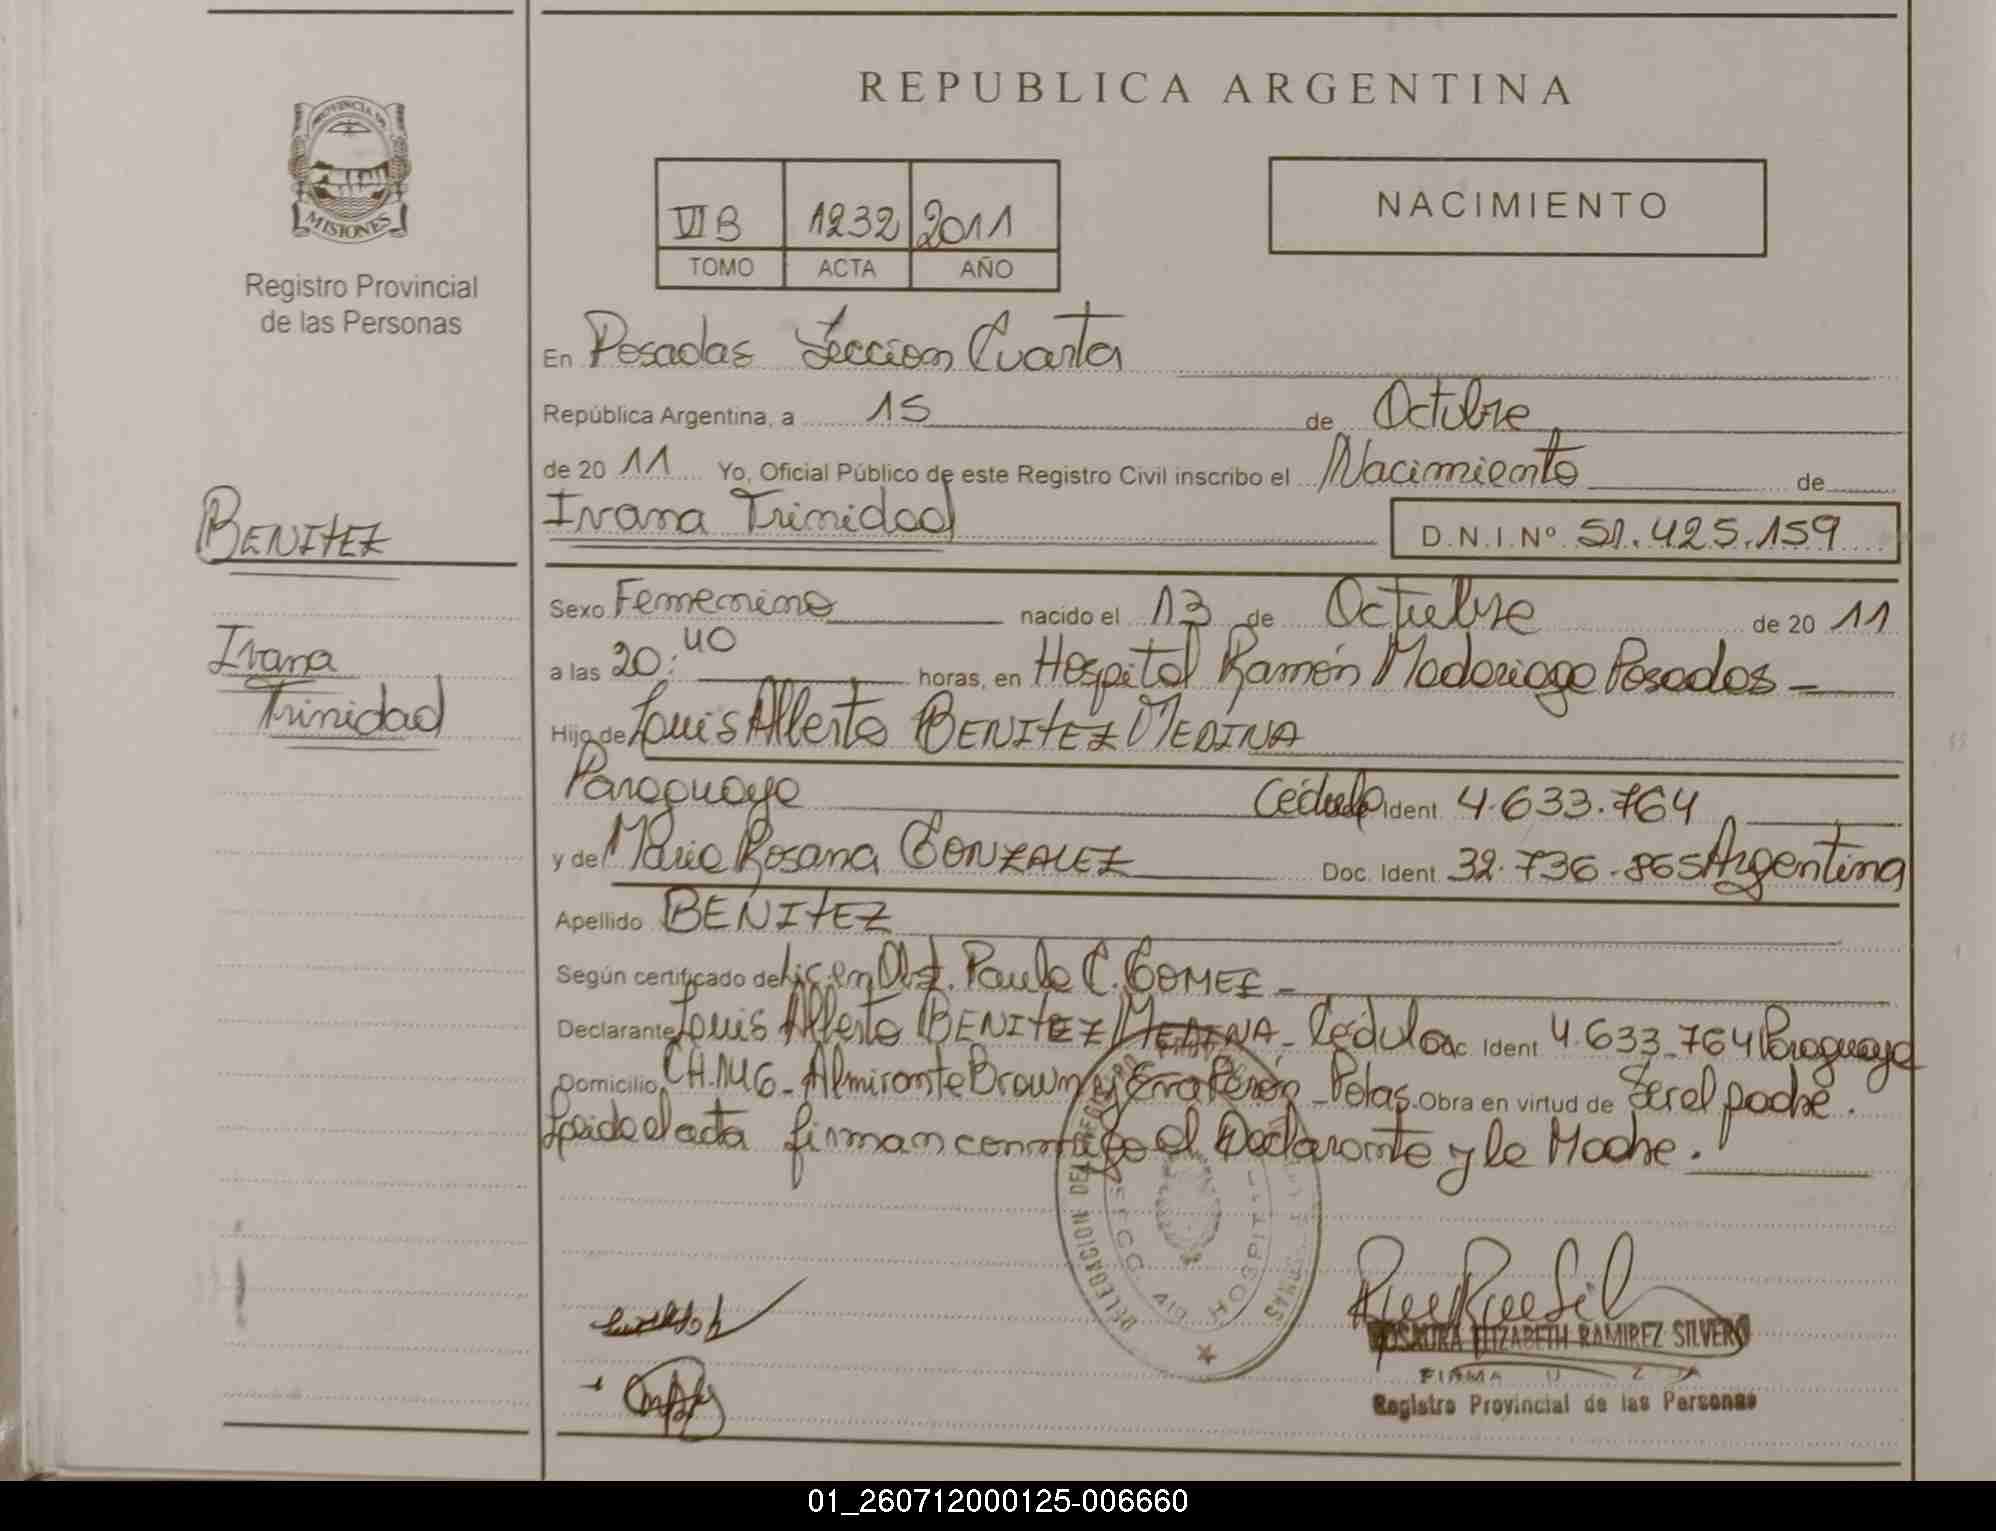 REPUBLICA ARGENTINA
PROVINCIA DE
MISIONES
Registro Provincial
de las Personas
VI B 1232 2011
TOMO ACTA AÑO
NACIMIENTO
En Posadas Seccion Cuarta
República Argentina, a 15 de Octubre
de 20 11 Yo, Oficial Público de este Registro Civil inscribo el Nacimiento de
BENITEZ
Ivana Trinidad
D.N.I. Nº 51.425.159
Sexo Femenino nacido el 13 de Octubre de 20 11
Ivana
Trinidad
a las 20:40 horas, en Hospital Ramón Madariaga Posadas -
Hijo de Louis Alberto BENITEZ MEDINA
Paraguayo Cédula Ident 4.633.764
y de Maria Rosana GONZALEZ Doc. Ident 32.736.865 Argentina
Apellido BENITEZ
Según certificado de Lic. en Obst. Paula C. GOMEZ -
Declarante Louis Alberto BENITEZ MEDINA - Cédula Doc. Ident 4.633.764 Paraguayo
Domicilio CH.146 - Almirante Brown y Eva Perón - Pdas. Obra en virtud de Ser el padre.
Leida el acta firman conmigo el Declarante y la Madre.
DELEGACION DEL REGISTRO
SECC. 4ta HOSPITAL
ROSAURA ELIZABETH RAMIREZ SILVERO
Registro Provincial de las Personas
01_260712000125-006660